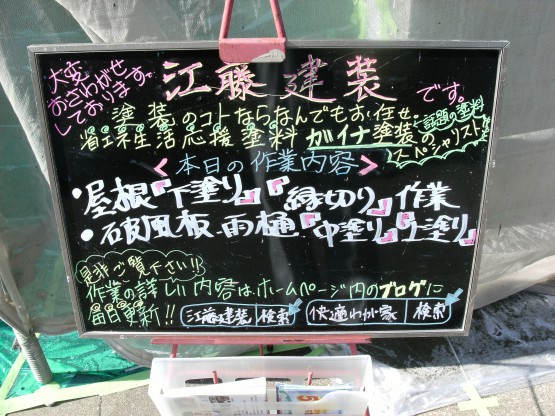 大変
おさわがせ
しております。
江藤建装
です。
塗装のコトならなんでもお任せ
省エネ生活応援塗料 ガイナ塗装の
話題の塗料
スペシャリスト
＜本日の作業内容＞
・屋根『下塗り』『縁切り』作業
・破風板 雨樋『中塗り』『上塗り』
是非ご覧下さい!!
作業の詳しい内容はホームページ内のブログに
毎日更新!!
江藤建装 検索 快適わが家 検索